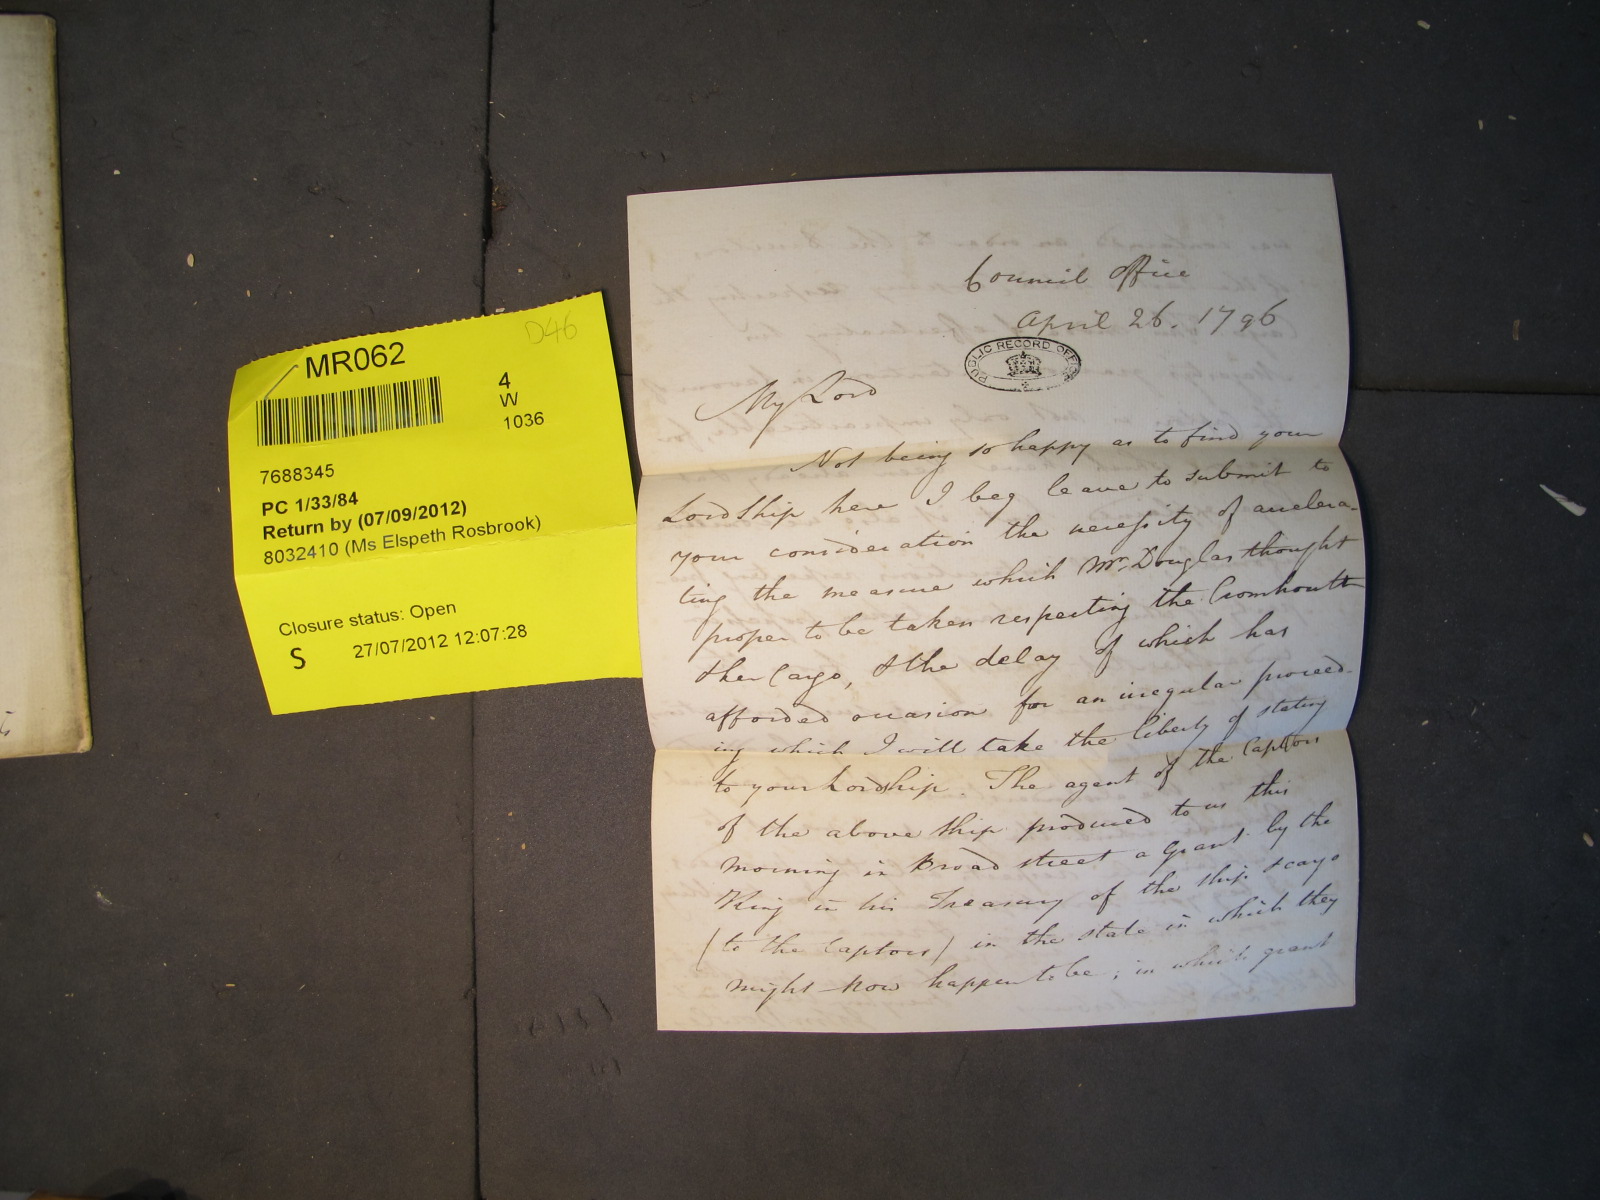 D46
MR062
4
W
1036
7688345
PC 1/33/84
Return by (07/09/2012)
8032410 (Ms Elspeth Rosbrook)
Closure status: Open
S 27/07/2012 12:07:28
Council Office
April 26. 1796
PUBLIC RECORD OFFICE
My Lord
Not being so happy as to find your
Lordship here I beg leave to submit to
your consideration the necessity of accelera-
ting the measure which Mr. Douglas thought
proper to be taken respecting the Cromhoutt
& her Cargo, & the delay of which has
afforded occasion for an irregular proceed-
ing which I will take the liberty of stating
to your Lordship. The agent of the Captors
of the above ship produced to us this
morning in Broad street a Grant by the
King in his Treasury of the ship & cargo
(to the Captors) in the state in which they
might now happen to be; in which grant